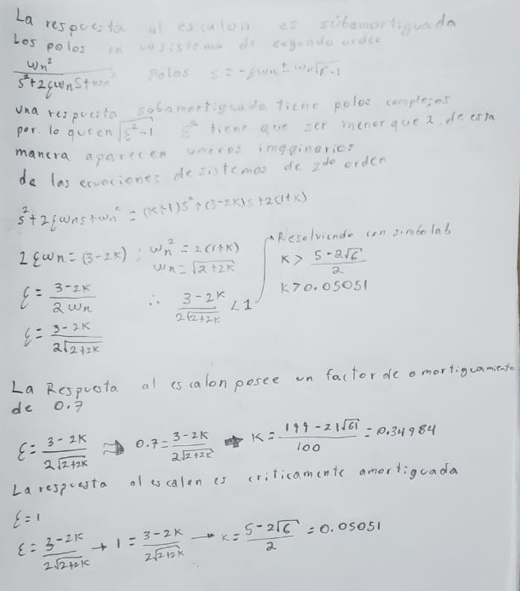 La respuesta al escalon es subamortiguada
Los polos en un sistema de segundo orden
wn²/(s²+2ξwns+wn²) Polos s = -ξwn ± wn√ξ²-1
una respuesta subamortiguada tiene polos complejos
por lo que en √ξ²-1 ξ² tiene que ser menor que 1, de esta
manera aparecen imaginarios
de las ecuaciones de sistemas de 2do orden
s²+2ξwns+wn² = (K+1)s²+(3-2K)s+2(1+K)
2ξwn = (3-2K) ; wn² = 2(1+K)
wn = √2+2K
ξ = (3-2K)/(2wn)
ξ = (3-2K)/(2√2+2K)
∴ (3-2K)/(2√2+2K) < 1
Resolviendo con simbolab
K > (5-2√6)/2
K > 0.05051
La Respuesta al escalon posee un factor de amortiguamiento
de 0.7
ξ = (3-2K)/(2√2+2K) ⇒ 0.7 = (3-2K)/(2√2+2K) → K = (199-21√61)/100 = 0.34984
La respuesta al escalon es criticamente amortiguada
ξ = 1
ξ = (3-2K)/(2√2+2K) → 1 = (3-2K)/(2√2+2K) → K = (5-2√6)/2 = 0.05051